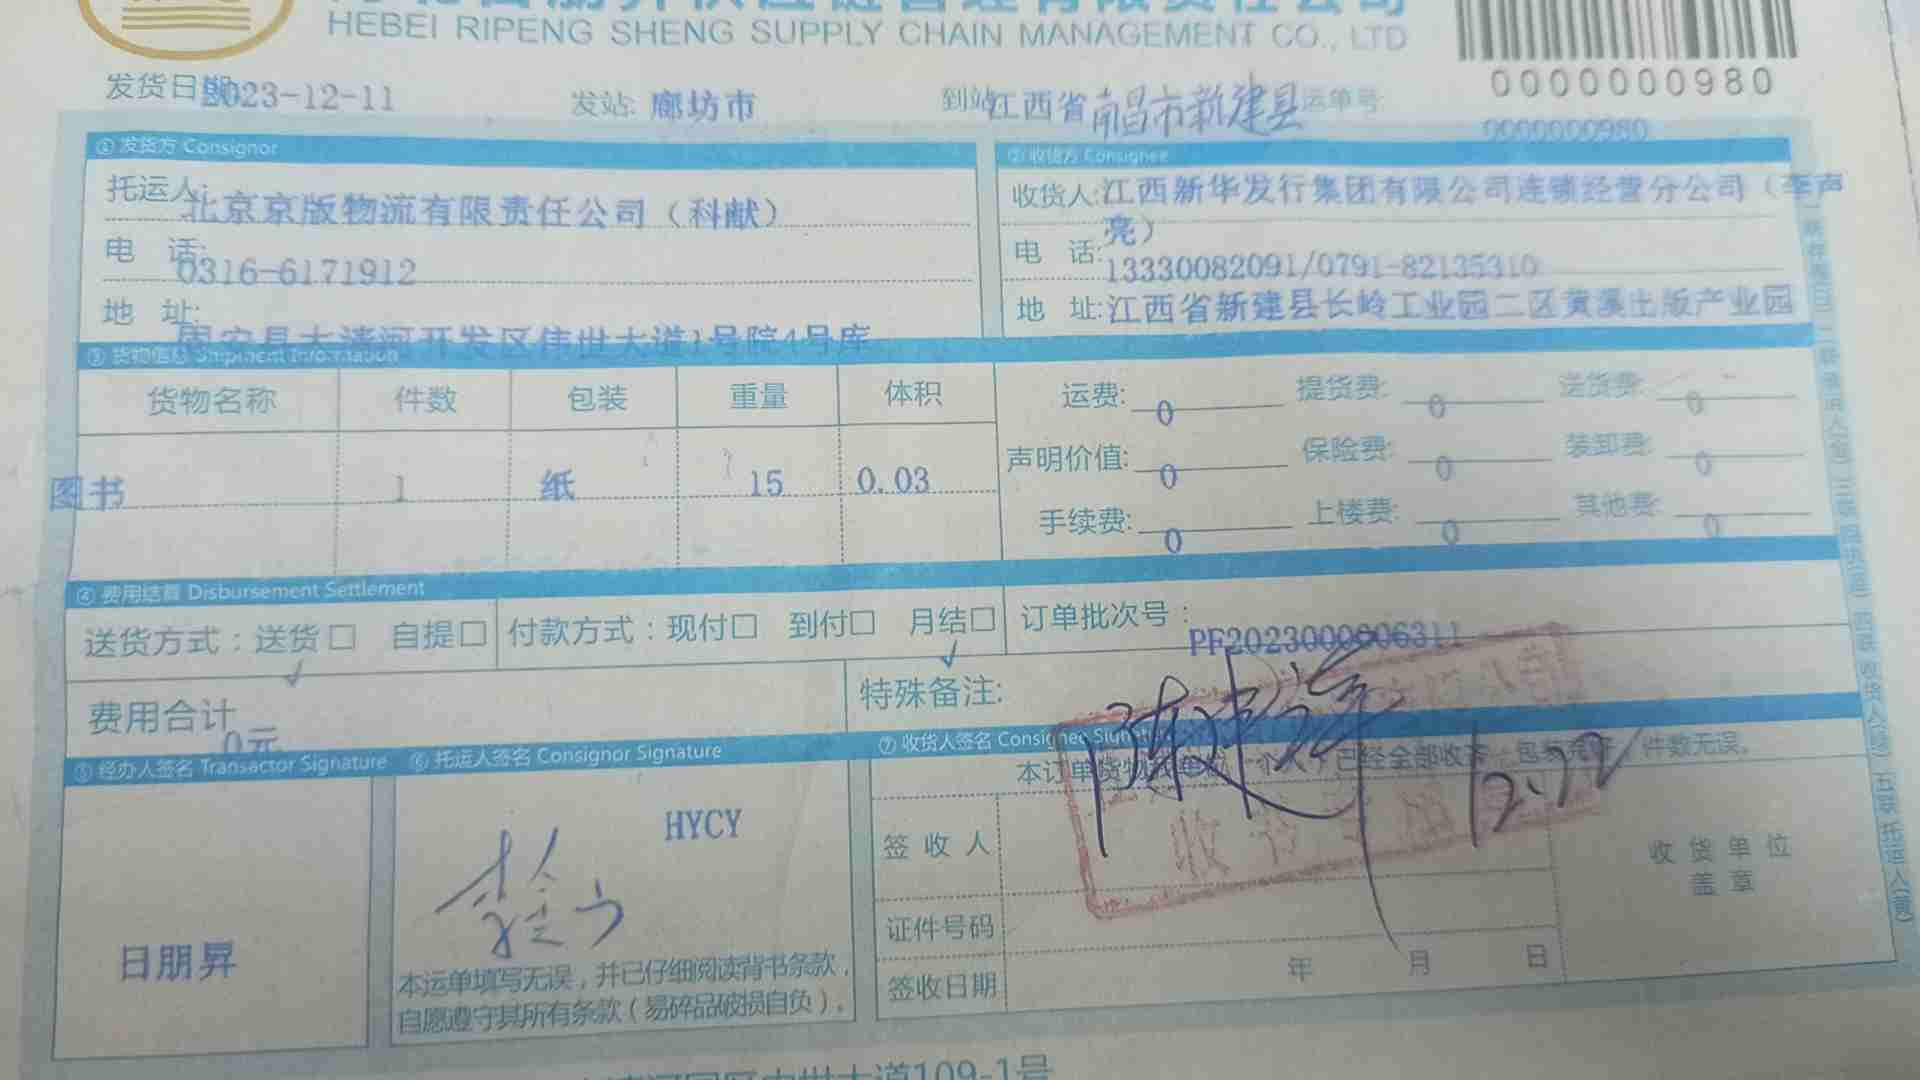 HEBEI RIPENG SHENG SUPPLY CHAIN MANAGEMENT CO., LTD
0000000980
发货日期 2023-12-11 发站: 廊坊市 到站 江西省南昌市新建县 运单号: 0000000980
① 发货方 Consignor
托运人: 北京京版物流有限责任公司（科献）
电 话: 0316-6171912
地 址: 固安县大清河开发区伟世大道1号院4号库
② 收货方 Consignee
收货人: 江西新华发行集团有限公司连锁经营分公司（李声
亮）
电 话: 13330082091/0791-82135310
地 址: 江西省新建县长岭工业园二区黄溪出版产业园
③ 货物信息 Shipment Information
货物名称 件数 包装 重量 体积
图书 1 纸 15 0.03
运费: 0 提货费: 0 送货费: 0
声明价值: 0 保险费: 0 装卸费: 0
手续费: 0 上楼费: 0 其他费: 0
④ 费用结算 Disbursement Settlement
送货方式：送货□ 自提□ 付款方式：现付□ 到付□ 月结□ 订单批次号：
PF2023000606311
费用合计 0元
特殊备注:
⑤ 经办人签名 Transactor Signature
日朋昇
⑥ 托运人签名 Consignor Signature
HYCY
本运单填写无误，并已仔细阅读背书条款，
自愿遵守其所有条款（易碎品破损自负）。
⑦ 收货人签名 Consignee Signature
本订单货物 已经全部收 件数无误。
12.12
收书
签 收 人
证件号码
签收日期 年 月 日
收 货 单 位
盖 章
大道109-1号